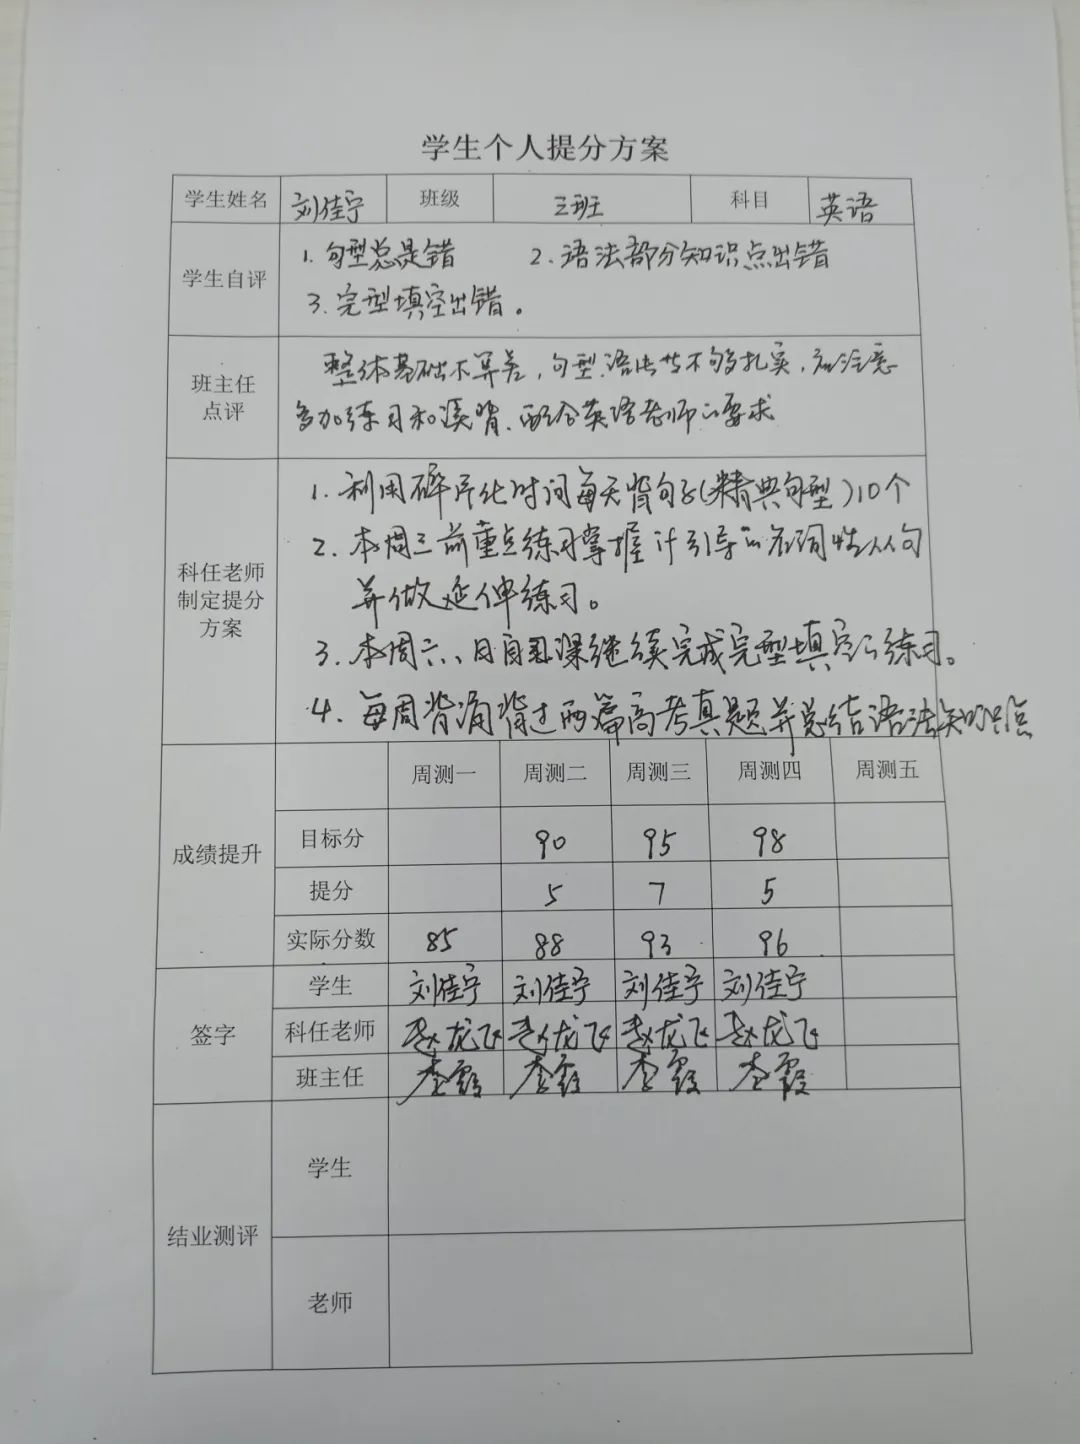 学生个人提分方案
学生姓名 刘佳宁 班级 三班 科目 英语
学生自评
1. 句型总是错 2. 语法部分知识点出错
3. 完型填空出错。
班主任
点评
整体基础不算差,句型、语法不够扎实,应注意
多加练习和溪背,配合英语老师的要求
科任老师
制定提分
方案
1. 利用碎片化时间每天背句子(精典句型)10个
2. 本周三前重点练习掌握 it 引导的名词性从句
并做延伸练习。
3. 本周六、日自习课继续完成完型填空的练习。
4. 每周背诵背过两篇高考真题并总结语法知识点
成绩提升
周测一 周测二 周测三 周测四 周测五
目标分 90 95 98
提分 5 7 5
实际分数 85 88 93 96
签字
学生 刘佳宁 刘佳宁 刘佳宁 刘佳宁
科任老师 赵龙飞 赵龙飞 赵龙飞 赵龙飞
班主任 李霞 李霞 李霞 李霞
结业测评
学生
老师